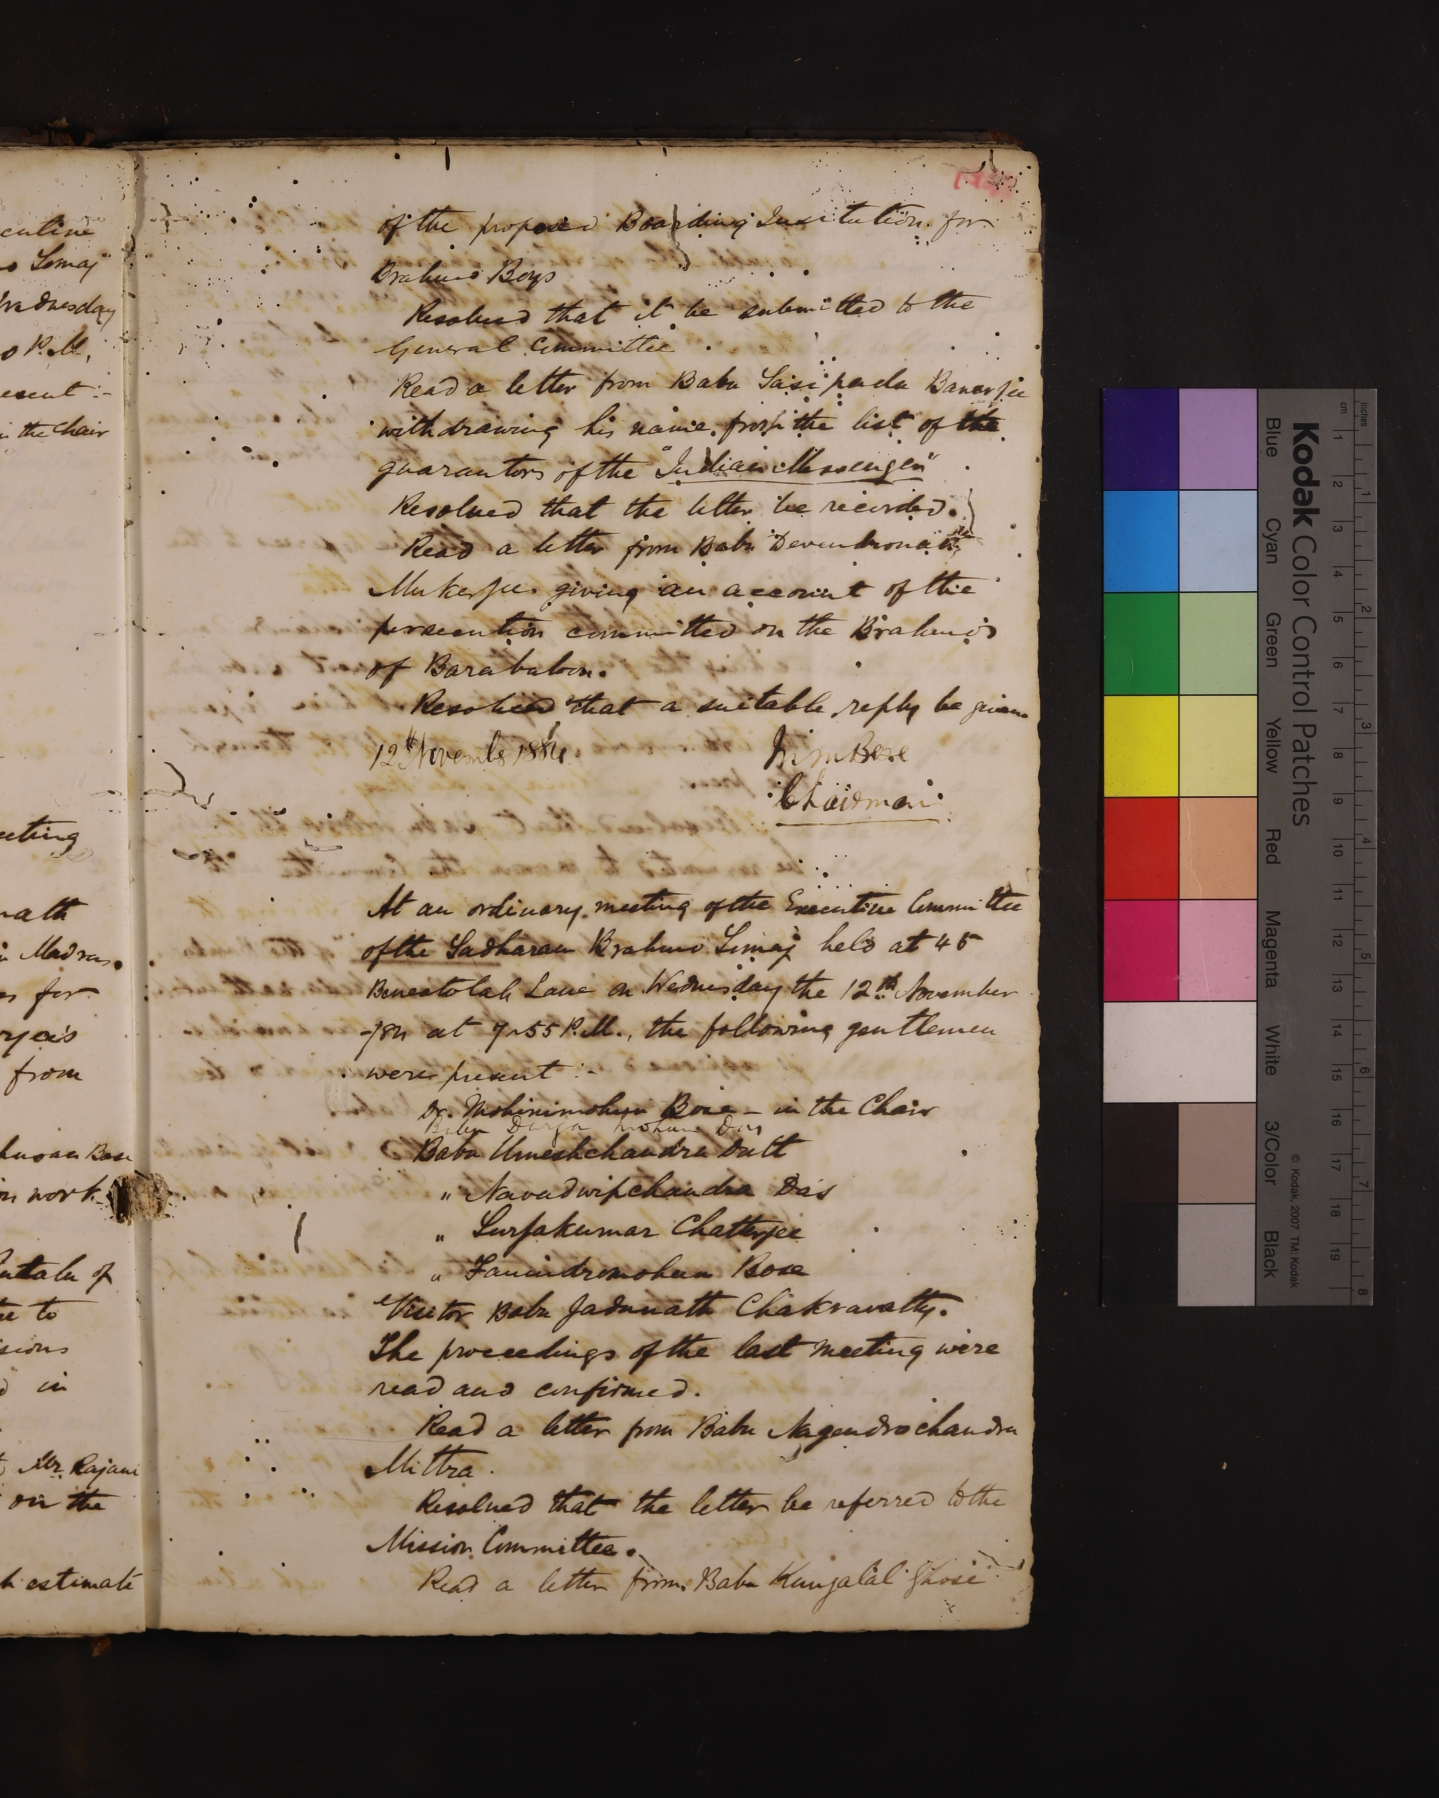 cutive
o Somaj
Wednesday
0 P.M,
esent :-
in the Chair
eeting
nath
in Madras.
es for
from
Bose
on work
of
te to
sions
d in
Mr. Rajani
on the
h estimate
of the proposed Boarding Institution for
Brahmo Boys
Resolved that it be submitted to the
General Committee.
Read a letter from Babu Sasipada Banerjee
withdrawing his name from the list of the
guarantors of the "Indian Messenger"
Resolved that the letter be recorded.
Read a letter from Babu Devendronath
Mukerjee giving an account of the
persecution committed on the Brahmos
of
Resolved that a suitable reply be given
12th November 1884. Bose
Chairman
At an ordinary meeting of the Executive Committee
of the Sadharan Brahmo Somaj held at 45
Beneatolah Lane on Wednesday the 12th November
-/84 at 7-55 P.M., the following gentlemen
were present :-
Dr. Mohinimohun Bose - in the Chair
Babu Durga Mohun Das
Babu Umeshchandra Datt
" Navadwipchandra Das
" Surjakumar Chatterjee
" Fanindromohun Bose
Visitor Babu Jadunath Chakravatty.
The proceedings of the last meeting were
read and confirmed.
Read a letter from Babu Nagendrochandra
Mittra.
Resolved that the letter be referred to the
Mission Committee.
Read a letter from Babu Kunjalal Ghose
Kodak Color Control Patches
Blue Cyan Green Yellow Red Magenta White 3/Color Black
© Kodak, 2007 TM: Kodak
cm 1 2 3 4 5 6 7 8 9 10 11 12 13 14 15 16 17 18 19
Inches 1 2 3 4 5 6 7 8